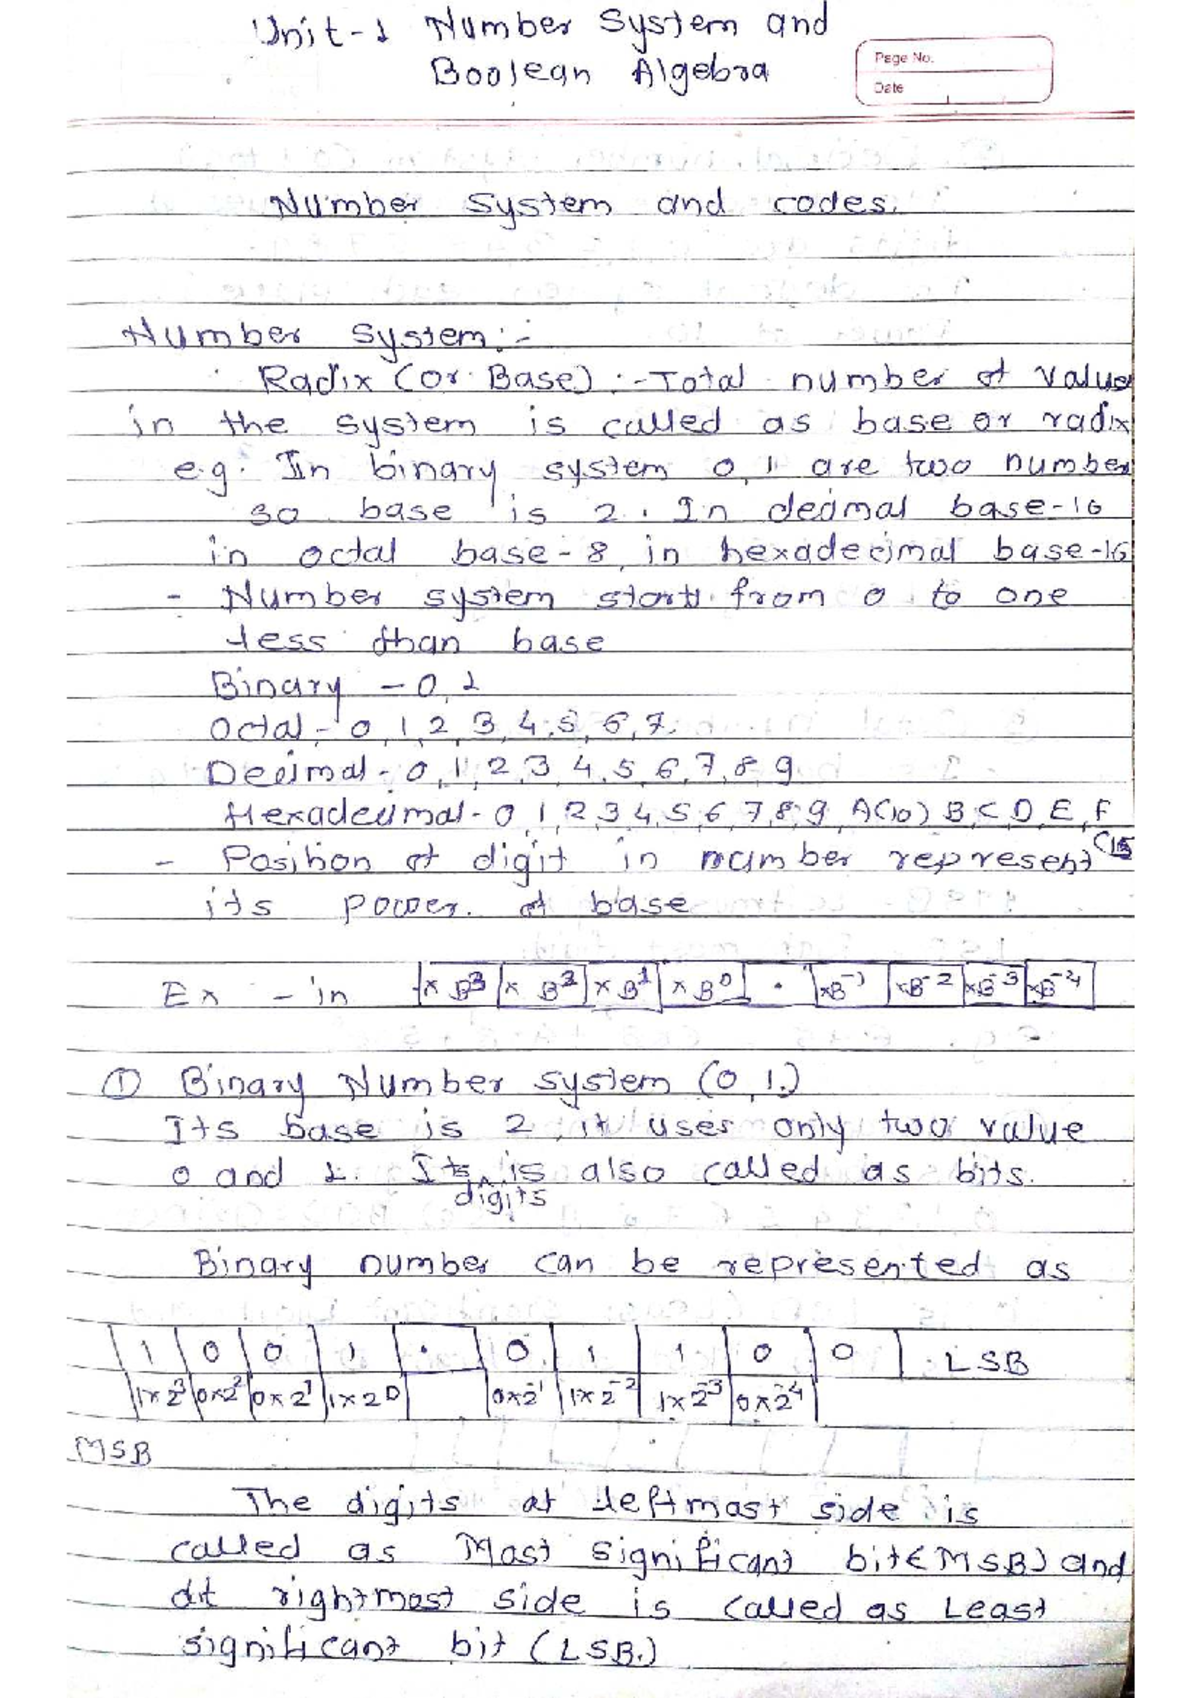 Unit-1 Number System and
Boolean Algebra
Page No.
Date
Number System and codes.
Number System :-
Radix (or Base) :- Total number of value
in the system is called as base or radix
e.g. In binary system 0, 1 are two number
so base is 2. In decimal base-10
in octal base-8, in hexadecimal base-16
- Number system start from 0 to one
less than base
Binary - 0, 1
Octal - 0, 1, 2, 3, 4, 5, 6, 7.
Decimal - 0, 1, 2, 3, 4, 5, 6, 7, 8, 9
Hexadecimal - 0, 1, 2, 3, 4, 5, 6, 7, 8, 9, A(10) B, C, D, E, F
(15
- Position of digit in number represent
its power of base
Ex - in ×B³ ×B² ×B¹ ×B⁰ . ×B⁻¹ ×B⁻² ×B⁻³ ×B⁻⁴
① Binary Number System (0, 1.)
Its base is 2, it uses only two value
0 and 1. Its digits is also called as bits.
Binary number can be represented as
1 0 0 1 . 0 1 1 0 0 LSB
1×2³ 0×2² 0×2¹ 1×2⁰ 0×2⁻¹ 1×2⁻² 1×2⁻³ 0×2⁻⁴
MSB
The digits at leftmost side is
called as Most significant bit (MSB) and
at rightmost side is called as Least
significant bit (LSB.)